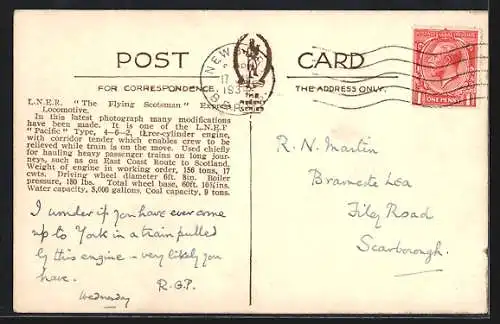 POST CARD
FOR CORRESPONDENCE.
THE ADDRESS ONLY.
THE
REGENT
SERIES
NEW
17
193
ONE PENNY
L.N.E.R. "The Flying Scotsman" Express
Locomotive.
In this latest photograph many modifications
have been made. It is one of the L.N.E.R
"Pacific" Type, 4—6—2, three-cylinder engine,
with corridor tender which enables crew to be
relieved while train is on the move. Used chiefly
for hauling heavy passenger trains on long jour-
neys, such as on East Coast Route to Scotland.
Weight of engine in working order, 156 tons, 17
cwts. Driving wheel diameter 6ft. 8in. Boiler
pressure, 180 lbs. Total wheel base, 60ft. 10⅝ins.
Water capacity, 5,000 gallons. Coal capacity, 9 tons.
I wonder if you have ever come
up to York in a train pulled
by this engine – very likely you
have. R.G.P.
Wednesday
R. N. Martin
Bramcote Lea
Filey Road
Scarborough.